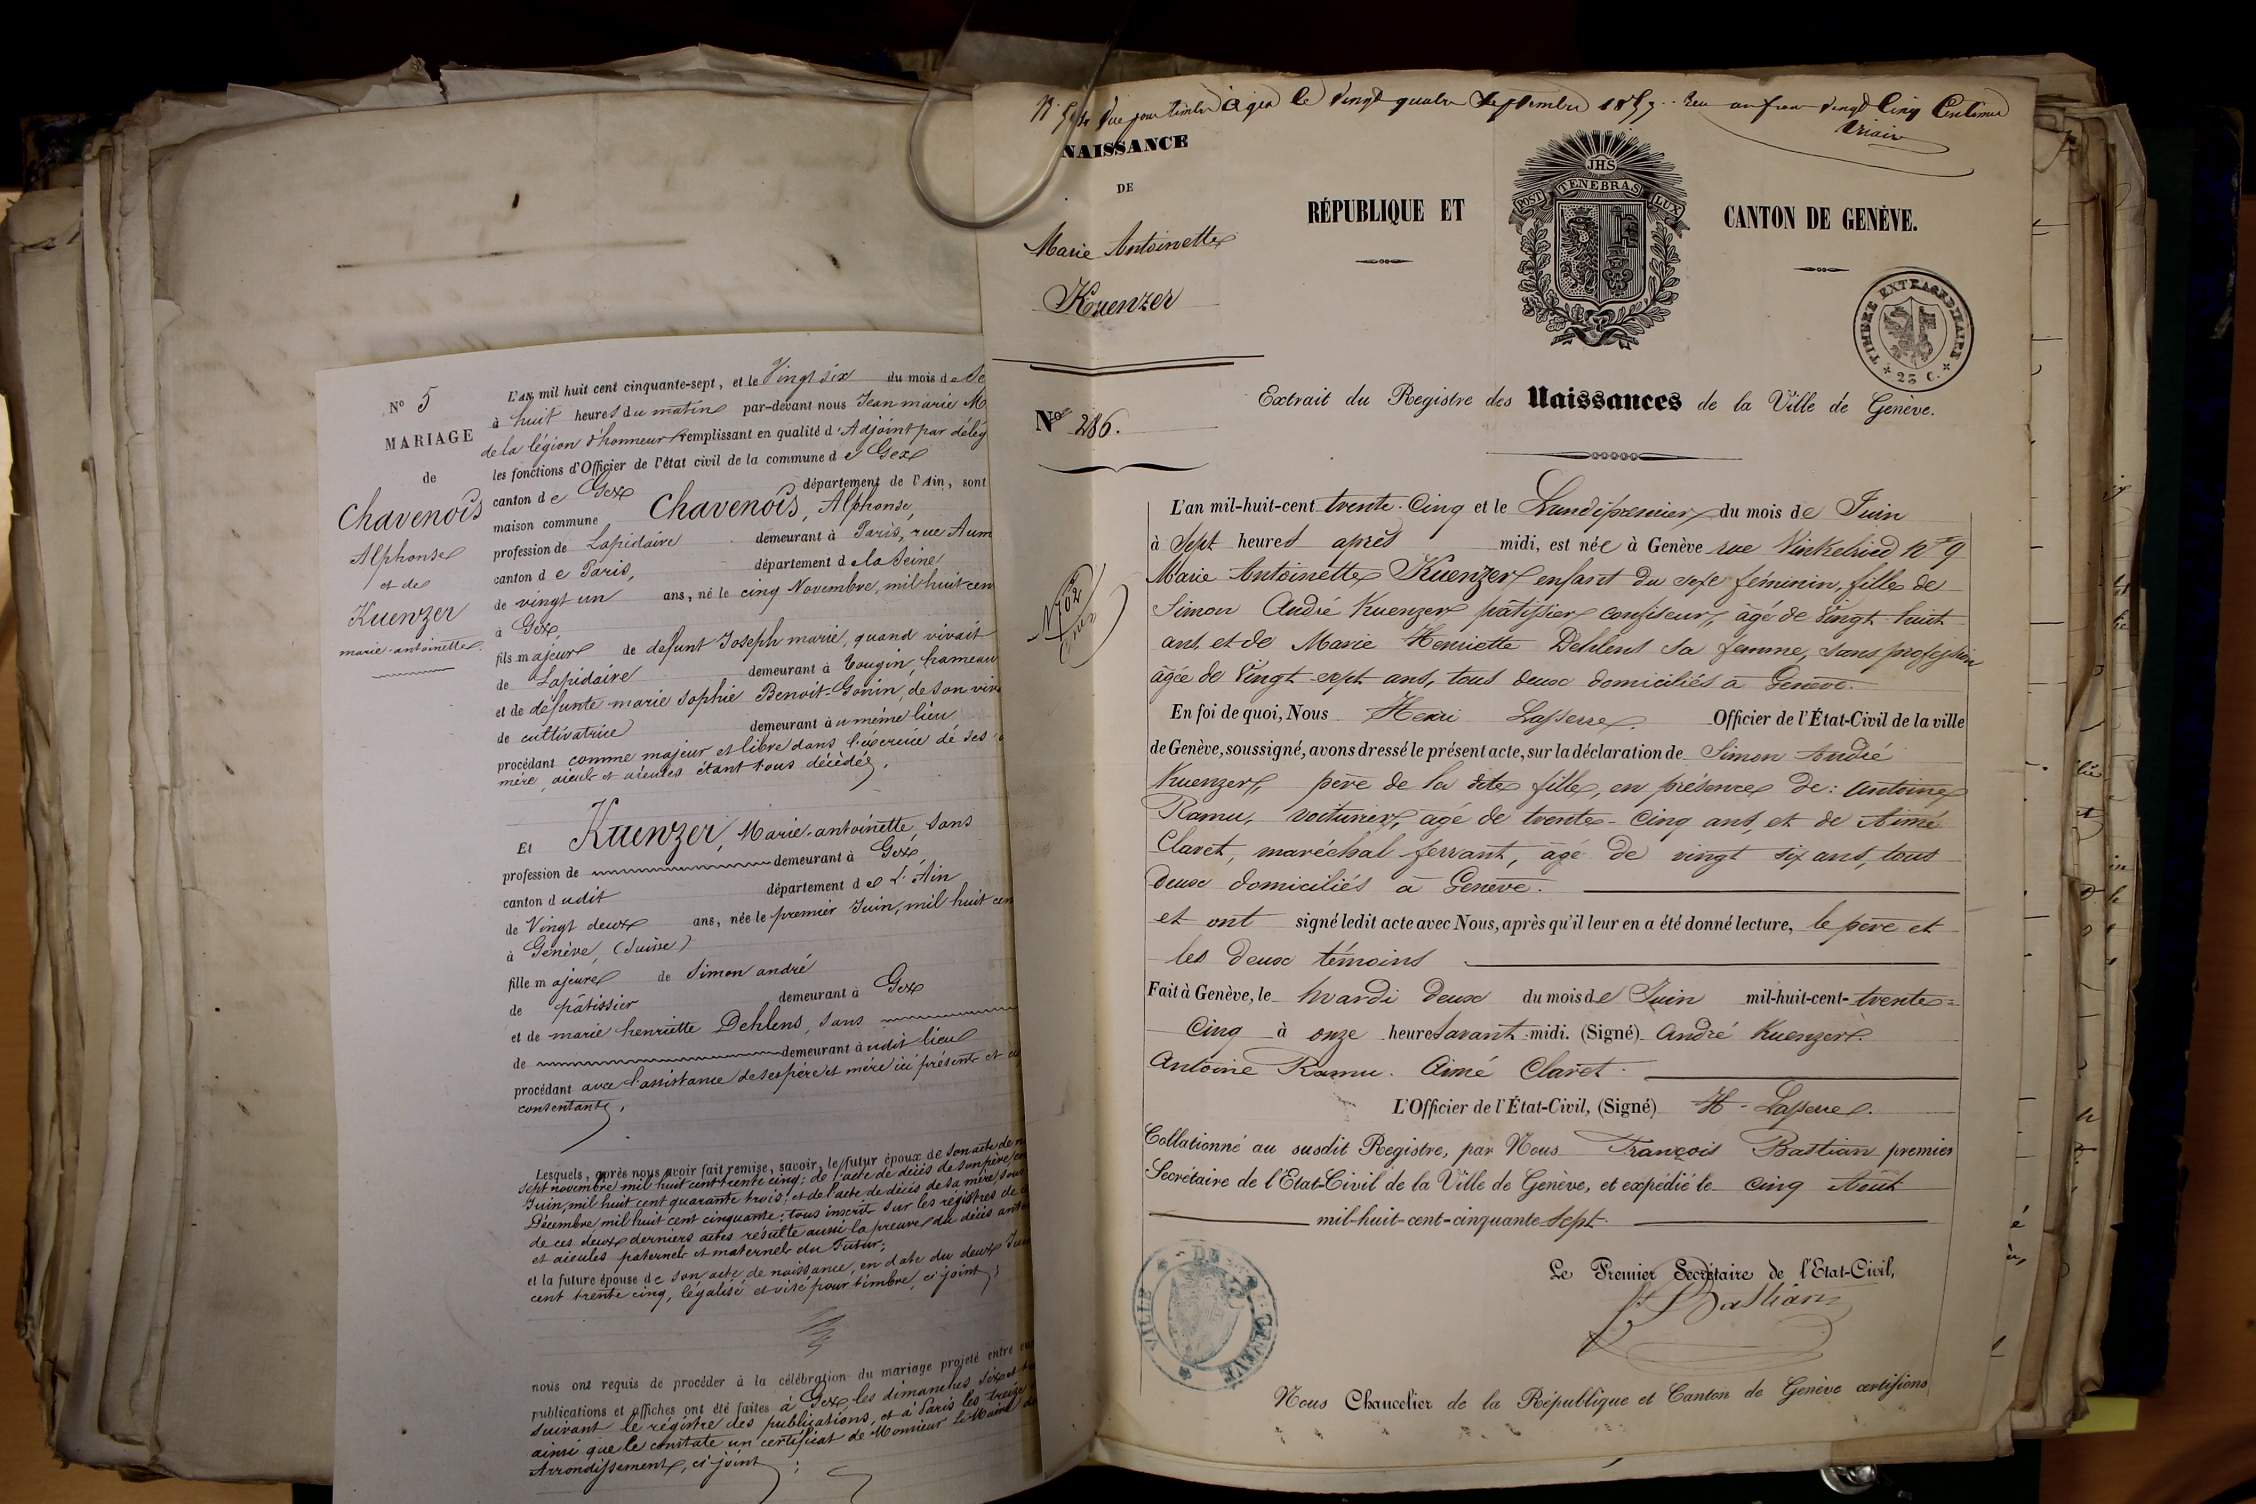 Nº 5
MARIAGE
de
Chavenois
Alphonse
et de
Kuenzer
marie-antoinette
L'an mil huit cent cinquante-sept, et le Vingt six du mois de Se
à huit heures du matin par-devant nous Jean marie M
de la légion d'honneur remplissant en qualité d'Adjoint par délég
les fonctions d'Officier de l'état civil de la commune de Gex
canton de Gex département de l'Ain, sont
maison commune Chavenois, Alphonse,
profession de Lapidaire demeurant à Paris, rue Aum
canton de Paris, département de la Seine
de vingt un ans, né le cinq Novembre, mil huit cen
à Gex,
fils majeur de défunt Joseph marie, quand vivait
de Lapidaire demeurant à Tougin, hameau
et de défunte marie Sophie Benoit-Gonin, de son viv
de cultivatrice demeurant au même lieu
procédant comme majeur et libre dans l'exercice de ses
mère, aïeuls et aïeules étant tous décédés,
Et Kuenzer, Marie-antoinette, sans
profession de demeurant à Gex,
canton dudit département de l'Ain
de Vingt deux ans, née le premier Juin, mil huit cen
à Genève, (Suisse)
fille majeure de Simon andré
de pâtissier demeurant à Gex
et de marie henriette Dehlens, sans
de demeurant audit lieu
procédant avec l'assistance de ses père et mère ici présents et
consentants,
Lesquels, après nous avoir fait remise, savoir, le futur époux de son acte de n
sept novembre mil huit cent trente cinq; de l'acte de décès de son père
Juin, mil huit cent quarante trois; et de l'acte de décès de sa mère, sous
Décembre mil huit cent cinquante; tous inscrits sur les régistres de
de ces deux derniers actes résulte aussi la preuve du décès
et aïeules paternels et maternels du Futur;
et la future épouse de son acte de naissance, en date du deux Juin
cent trente cinq, légalisé et visé pour timbre, ci joint;
nous ont requis de procéder à la célébration du mariage projeté entre
publications et affiches ont été faites à Gex les dimanches six et
suivant le régistre des publications, et à Paris les treize
ainsi que le constate un certificat de Monsieur Le Maire
Arrondissement, ci joint;
Vue pour timbre à gex le vingt quatre Septembre 1857. Reçu un franc vingt Cinq Centimes
NAISSANCE
DE
Marie Antoinette
Kuenzer
Nº 286.
RÉPUBLIQUE ET CANTON DE GENÈVE.
JHS
POST TENEBRAS LUX
TIMBRE EXTRAORDINAIRE
25 C.
Extrait du Registre des Naissances de la Ville de Genève.
L'an mil-huit-cent trente-Cinq et le Lundi premier du mois de Juin
à Sept heures après midi, est née à Genève rue Vinkelried Nº 9
Marie Antoinette Kuenzer enfant du sexe féminin, fille de
Simon André Kuenzer pâtissier confiseur, âgé de Vingt-huit
ans, et de Marie Henriette Dehlens sa femme, sans profession
âgée de Vingt-sept ans, tous deux domiciliés à Genève.
En foi de quoi, Nous Henri Lasserre Officier de l'État-Civil de la ville
de Genève, soussigné, avons dressé le présent acte, sur la déclaration de Simon André
Kuenzer, père de la dite fille, en présence de: Antoine
Ramu, voiturier, âgé de trente-Cinq ans, et de Aimé
Claret, maréchal ferrant, âgé de vingt six ans, tous
deux domiciliés à Genève.
et ont signé ledit acte avec Nous, après qu'il leur en a été donné lecture, le père et
les deux témoins
Fait à Genève, le Mardi deux du mois de Juin mil-huit-cent-trente-
Cinq à onze heures avant midi. (Signé) André Kuenzer.
Antoine Ramu. Aimé Claret.
L'Officier de l'État-Civil, (Signé) H. Lasserre.
Collationné au susdit Registre, par Nous François Bastian premier
Secrétaire de l'Etat-Civil de la Ville de Genève, et expédié le cinq Août
mil-huit-cent-cinquante-sept.
Le Premier Secrétaire de l'Etat-Civil,
F. Bastian
VILLE DE GENÈVE
Nous Chancelier de la République et Canton de Genève certifions